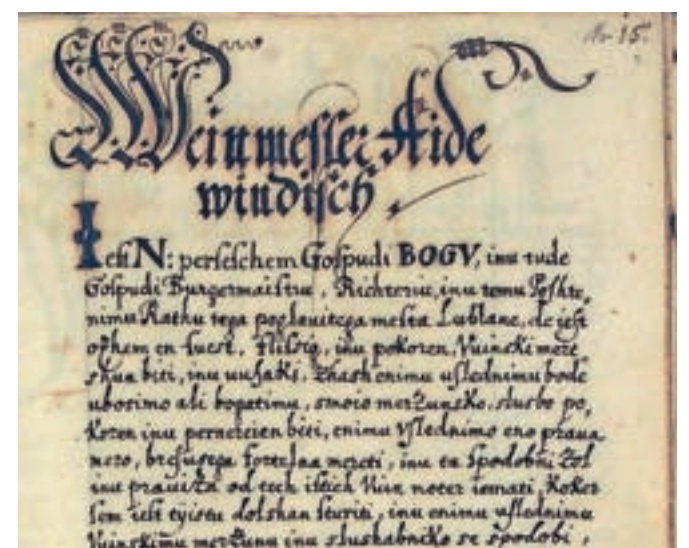 Nr 15.
Weinmesser Aide
windisch.
Iest N: perseschem Gospudi BOGV, inu tude
Gospudi Burgermaistru, Richteriu, inu temu Poshte,
nimu Rathu tega poglauitega mesta Lublane, de jest
ozhem en suest, flisig, inu pokoren, Vuinski mere
shun biti, inu uusaki zhash enimu uslednimu bodé
ubosimo ali bogatimu, smoio merzunsko slusbo po,
koren inu pernezeien biti, enimu Vslednimo eno prauo
mero, bresusega fortelna mereti, inu ta spodobni Zol
inu prauiza od teh istich Vuin noter iemati, Koker
sem iest tyistu dolshan sturiti, inu enimu uslednimu
Vuinskimu merzunu inu slushabniko se spodobi,